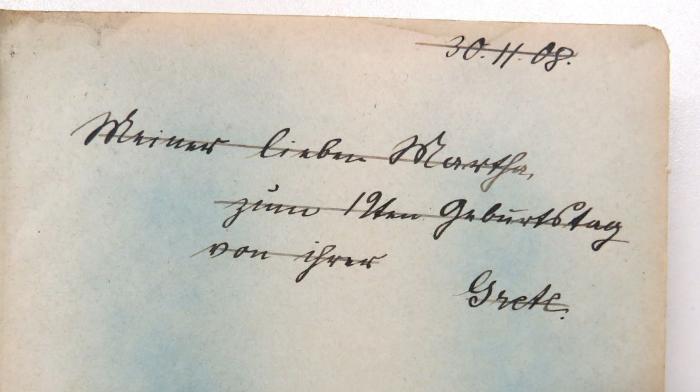 30.11.08.
Meiner lieben Martha,
zum 19ten Geburtstag
von ihrer
Gretl.